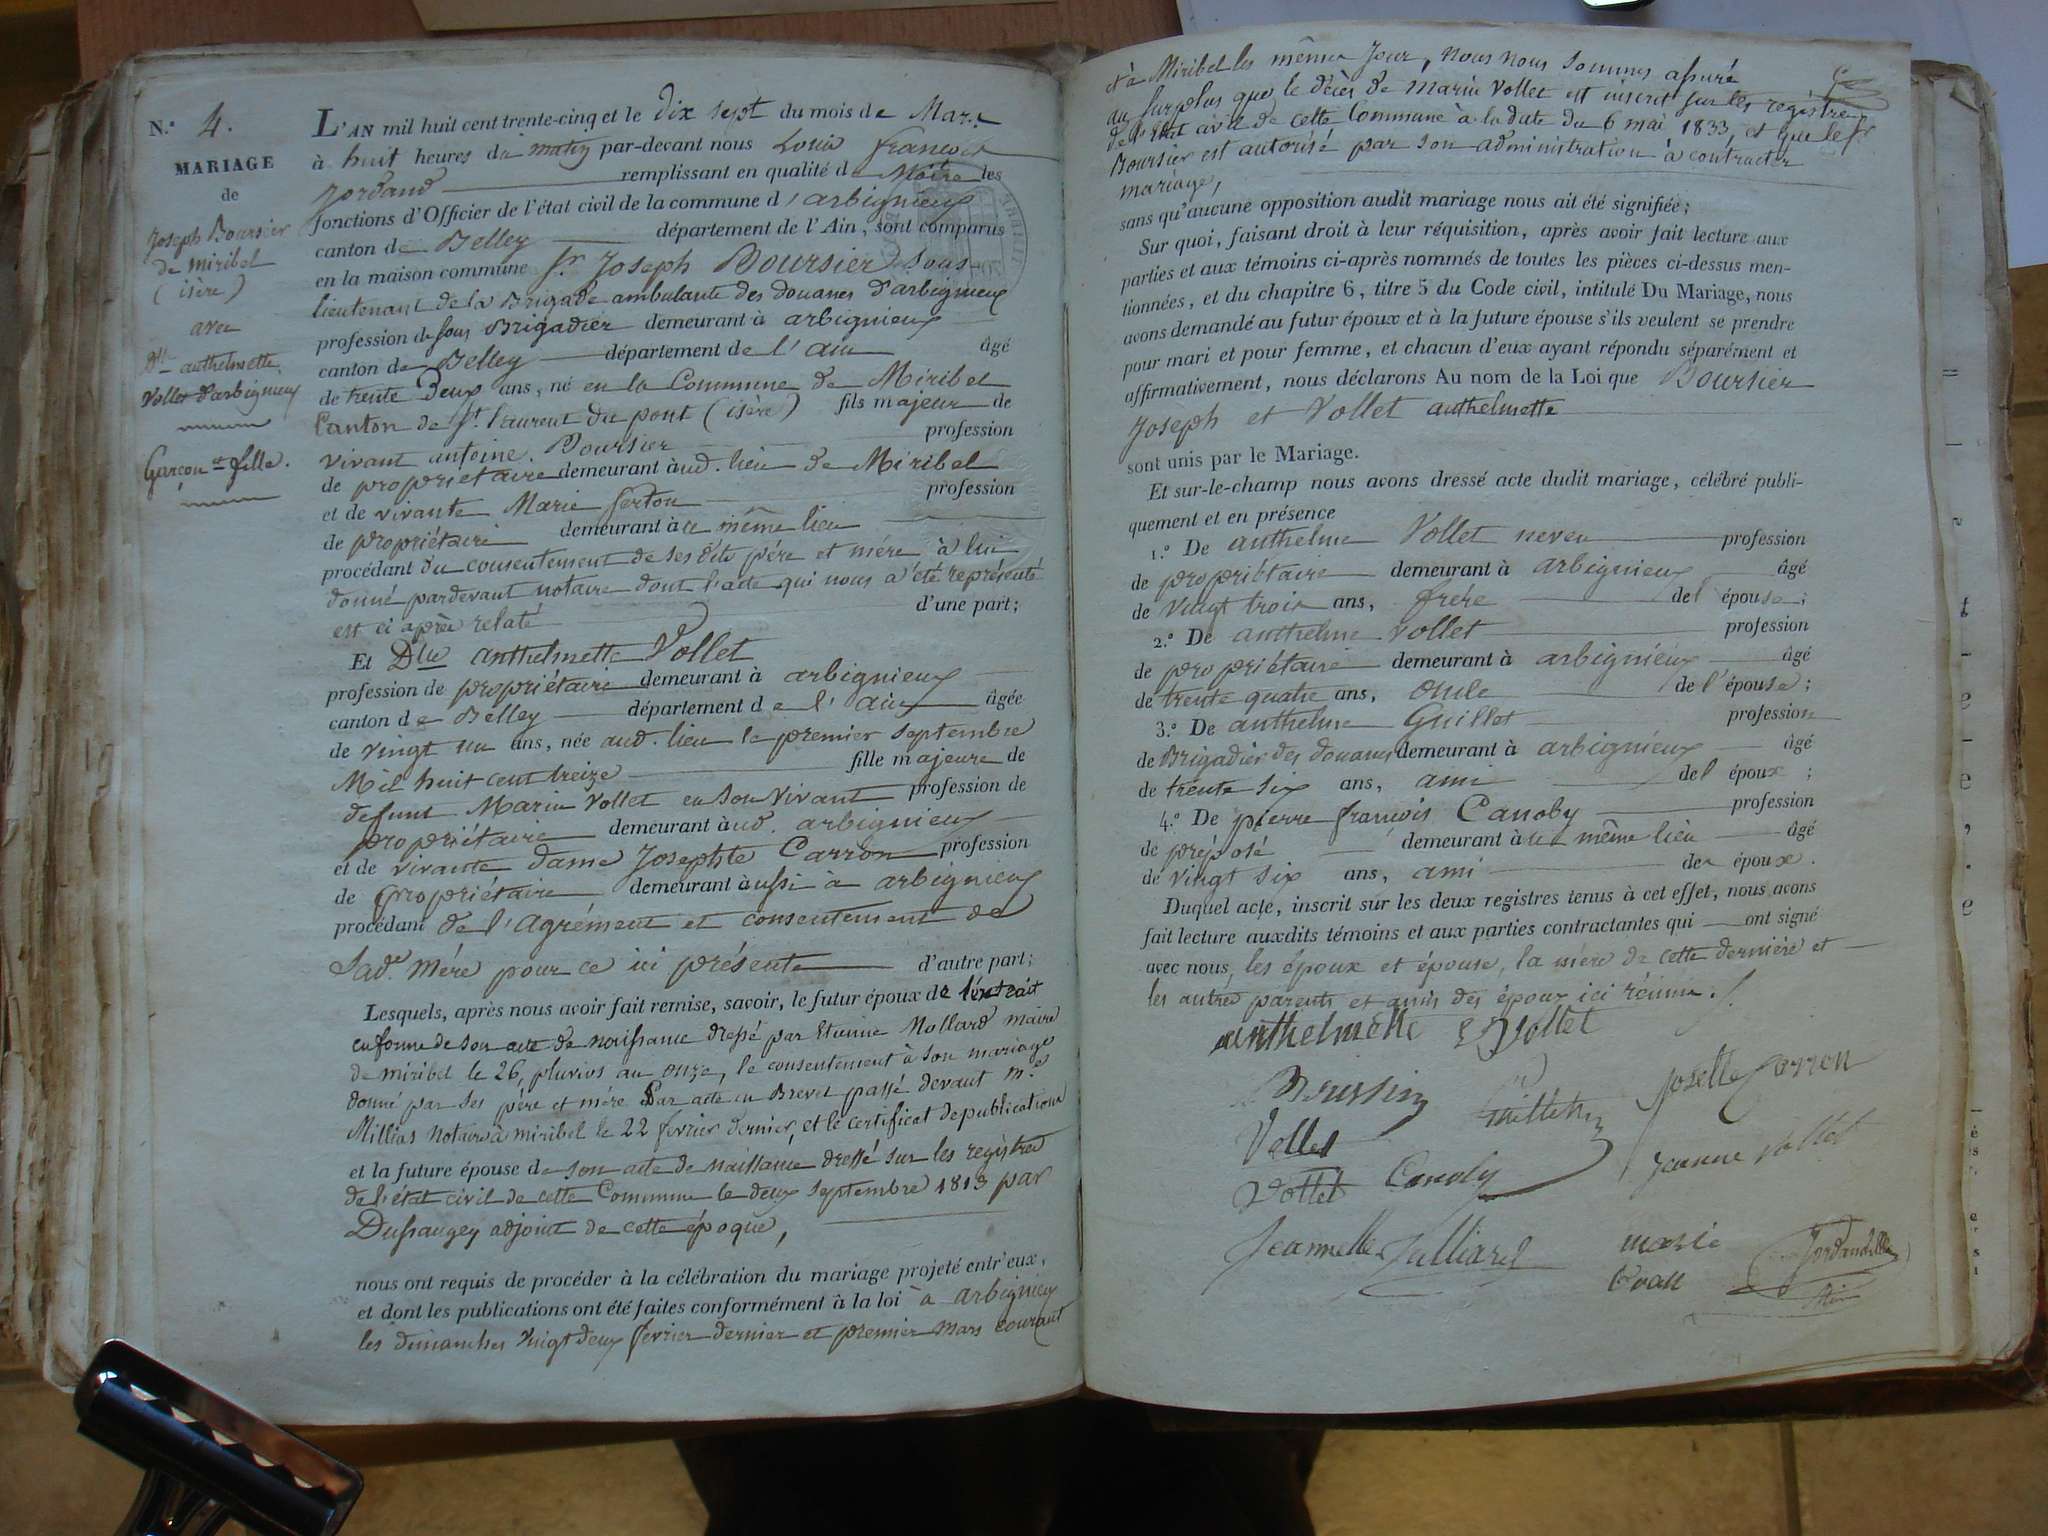 N.o 4.
MARIAGE
de
Joseph Boursier
de Miribel
(isère)
avec
Dlle anthelmette
Vollet d'arbignieux
Garçon et fille.
L'AN mil huit cent trente-cinq et le dix sept du mois de Mars
à huit heures du matin par-devant nous Louis françois
Jordand remplissant en qualité de Maire les
fonctions d'Officier de l'état civil de la commune d'arbignieux
canton de Belley département de l'Ain, sont comparus
en la maison commune Sr Joseph Boursier sous
lieutenant de la Brigade ambulante des douanes d'arbignieux
profession de sous Brigadier demeurant à arbignieux
canton de Belley département de l'ain âgé
de trente deux ans, né en la Commune de Miribel
Canton de St. laurent du pont (isère) fils majeur de
vivant antoine Boursier profession
de propriétaire demeurant aud. lieu de Miribel
et de vivante Marie ferton profession
de propriétaire demeurant au même lieu
procédant du consentement de ses dits père et mère à lui
donné pardevant notaire dont l'acte qui nous a été représenté
est ci après relaté d'une part;
Et Dlle anthelmette Vollet
profession de propriétaire demeurant à arbignieux
canton de Belley département de l'ain âgée
de vingt un ans, née aud. lieu le premier septembre
Mil huit cent treize fille majeure de
defunt Marin Vollet en son vivant profession de
propriétaire demeurant aud. arbignieux
et de vivante dame Josephte Carron profession
de propriétaire demeurant aussi à arbignieux
procédant de l'agrément et consentement de
Sade. Mère pour ce ici présente d'autre part;
Lesquels, après nous avoir fait remise, savoir, le futur époux de l'extrait
en forme de son acte de naissance dressé par Etienne Mollard maire
de miribel le 26, pluvios an onze, le consentement à son mariage
donné par ses père et mére Par acte en Brevet passé devant Me
Millias Notaire à miribel le 22 fevrier dernier, et le certificat de publications
et la future épouse de son acte de naissance dressé sur les registres
de l'état civil de cette Commune le deux septembre 1813 par
Dussaugey adjoint de cette époque,
nous ont requis de procéder à la célébration du mariage projeté entr'eux,
et dont les publications ont été faites conformément à la loi à arbignieux
les dimanches vingt deux fevrier dernier et premier mars courant
et à Miribel les mêmes Jour, nous nous sommes assuré
au surplus que le décès de Marin Vollet est inscrit sur les registres
de l'état civil de cette Commune à la date du 6 mai 1833, et que le Sr
Boursier est autorisé par son administration à contracter
mariage,
sans qu'aucune opposition audit mariage nous ait été signifiée;
Sur quoi, faisant droit à leur réquisition, après avoir fait lecture aux
parties et aux témoins ci-après nommés de toutes les pièces ci-dessus men-
tionnées, et du chapitre 6, titre 5 du Code civil, intitulé Du Mariage, nous
avons demandé au futur époux et à la future épouse s'ils veulent se prendre
pour mari et pour femme, et chacun d'eux ayant répondu séparément et
affirmativement, nous déclarons Au nom de la Loi que Boursier
Joseph et Vollet anthelmette
sont unis par le Mariage.
Et sur-le-champ nous avons dressé acte dudit mariage, célébré publi-
quement et en présence
1.o De anthelme Vollet neveu profession
de propriétaire demeurant à arbignieux âgé
de vingt trois ans, frére de l'épouse;
2.o De anthelme Vollet profession
de propriétaire demeurant à arbignieux âgé
de trente quatre ans, oncle de l'épouse;
3.o De anthelme Guillot profession
de Brigadier des douanes demeurant à arbignieux âgé
de trente six ans, ami de l époux;
4.o De pierre françois Canoby profession
de préposé demeurant au même lieu âgé
de vingt six ans, ami de époux.
Duquel acte, inscrit sur les deux registres tenus à cet effet, nous avons
fait lecture auxdits témoins et aux parties contractantes qui ont signé
avec nous, les époux et épouse, la mère de cette dernière et
les autres parents et amis des époux ici réunis.
anthelmette Vollet
Josette Carron
Vollet
Vollet Canoby Jeanne Vollet
Jeannette Julliard marie